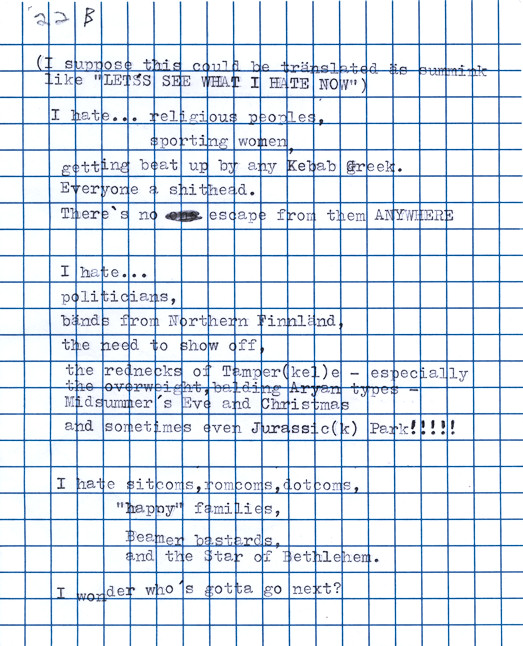 '22 B
(I suppose this could be translated äs summink
like "LET'S SEE WHAT I HATE NOW")
I hate... religious peoples,
sporting women,
getting beat up by any Kebab Greek.
Everyone a shithead.
There`s no escape from them ANYWHERE
I hate...
politicians,
bänds from Northern Finnländ,
the need to show off,
the rednecks of Tamper(kel)e - especially
the overweight,balding Aryan types -
Midsummer´s Eve and Christmas
and sometimes even Jurassic(k) Park!!!!!
I hate sitcoms,romcoms,dotcoms,
"happy" families,
Beamer bastards,
and the Star of Bethlehem.
I wonder who´s gotta go next?